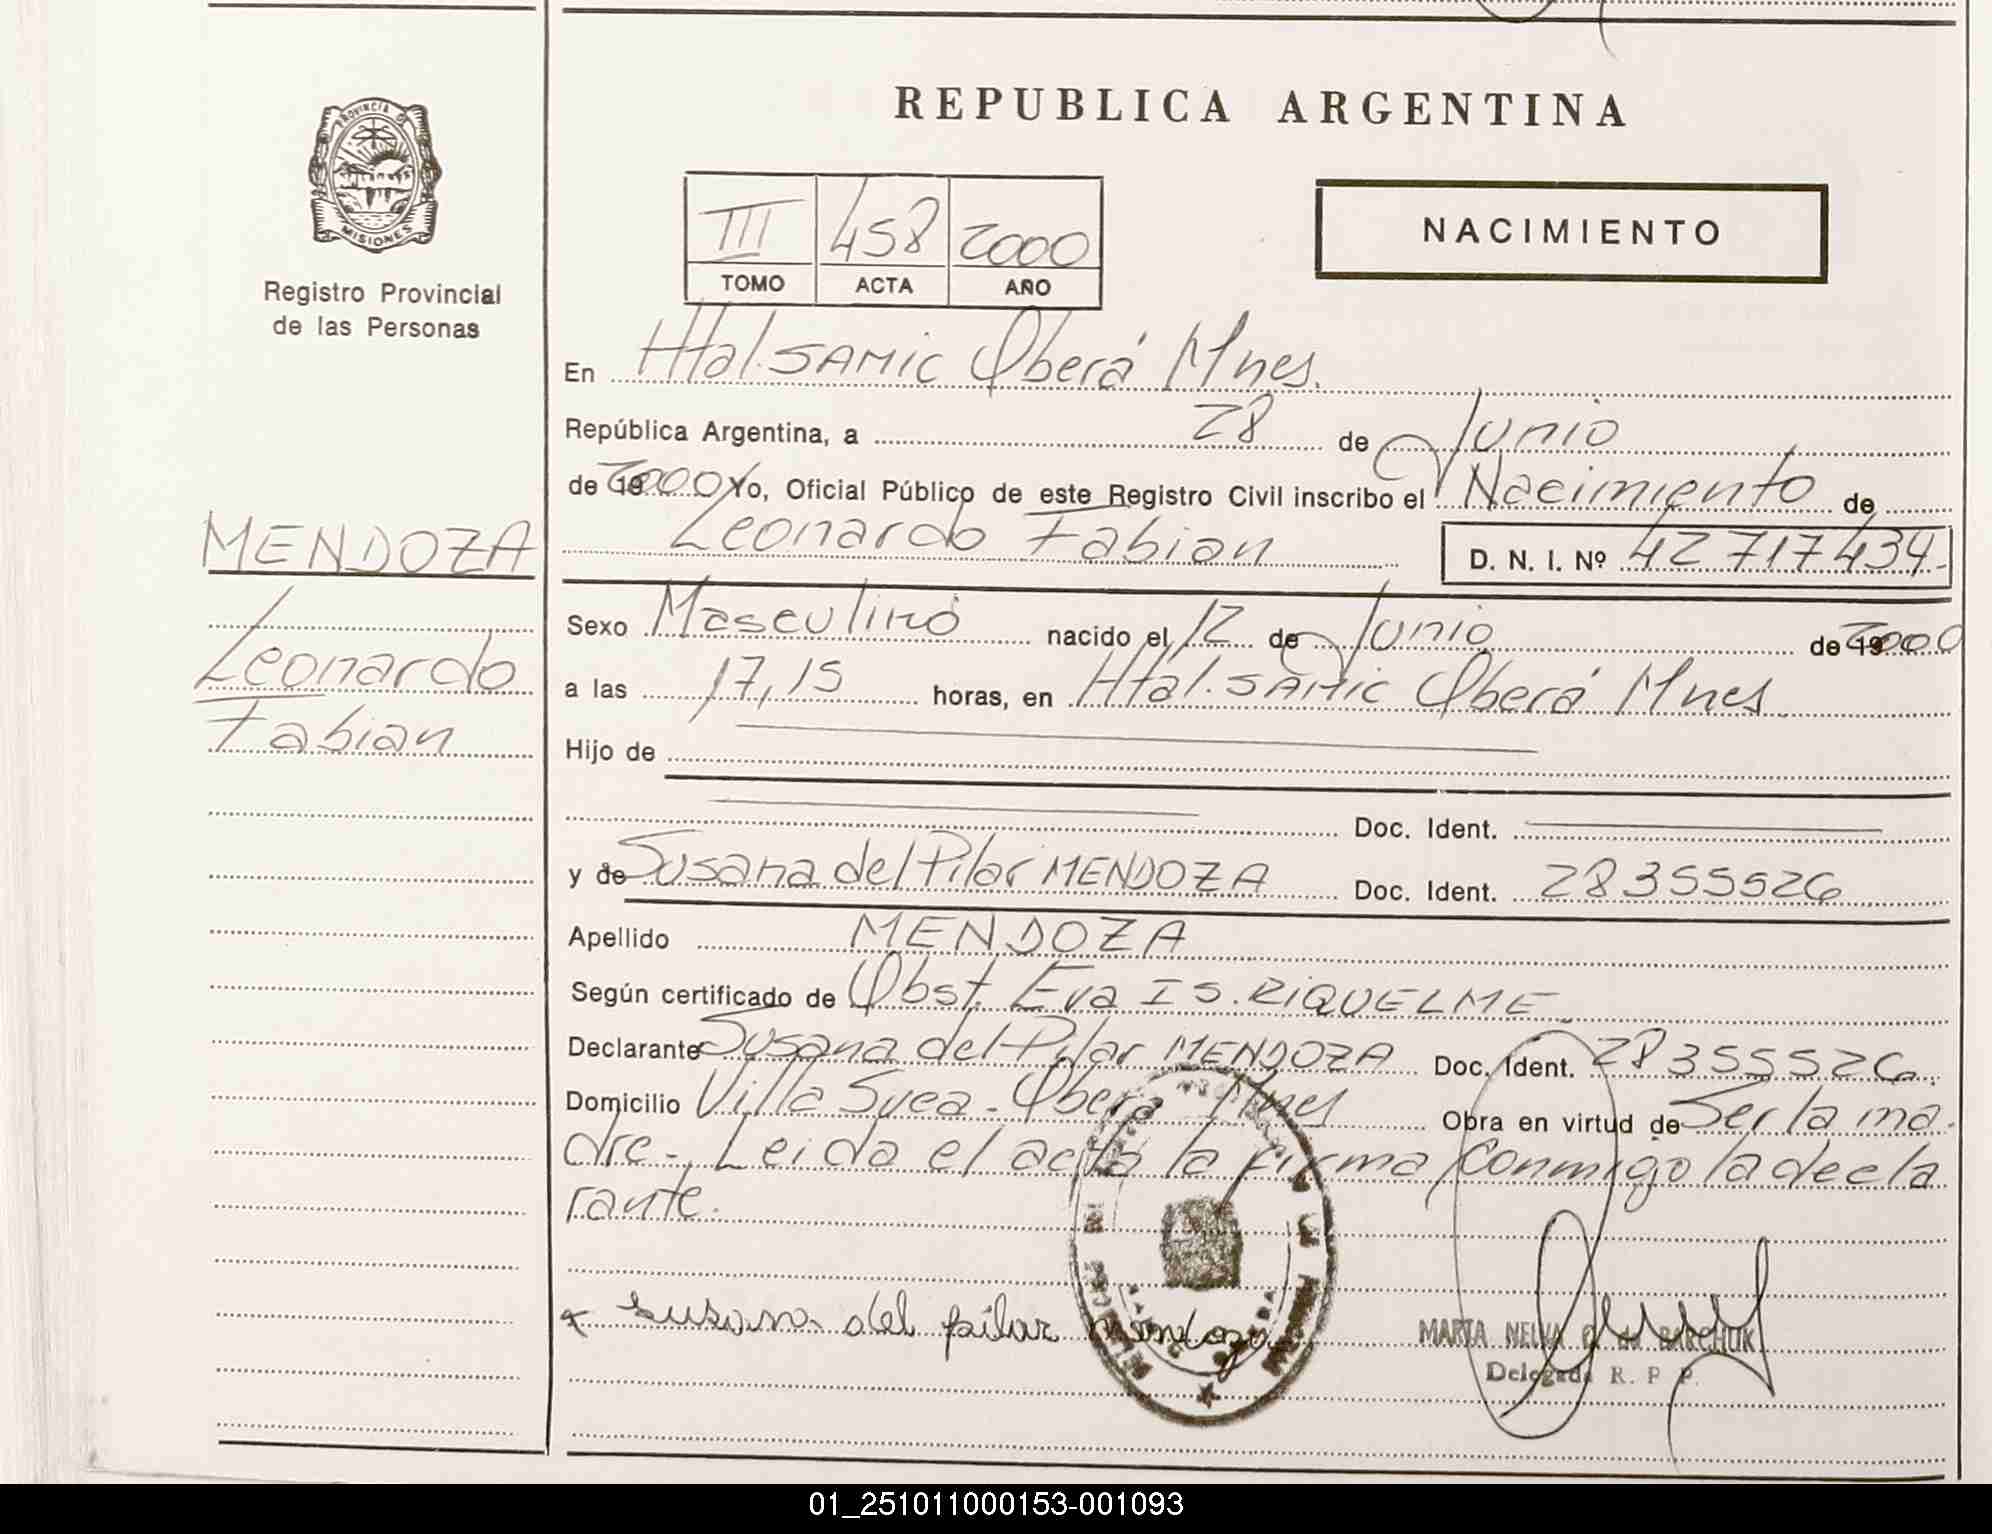 REPUBLICA ARGENTINA
PROVINCIA DE
MISIONES
Registro Provincial
de las Personas
III 458 2000
TOMO ACTA AÑO
NACIMIENTO
En Htal. SAMIC Oberá Mnes.
República Argentina, a 28 de Junio
de 2000 Yo, Oficial Público de este Registro Civil inscribo el Nacimiento de
Leonardo Fabian D. N. I. Nº 42717434-
MENDOZA
Leonardo
Fabian
Sexo Masculino nacido el 12 de Junio de 2000
a las 17,15 horas, en Htal. SAMIC Oberá Mnes
Hijo de
Doc. Ident.
y de Susana del Pilar MENDOZA Doc. Ident. 28355526
Apellido MENDOZA
Según certificado de Obst. Eva IS. RIQUELME
Declarante Susana del Pilar MENDOZA Doc. Ident. 28355526.
Domicilio Villa Svea - Oberá Mnes Obra en virtud de Ser la ma-
dre-, Leida el acta la firma conmigo la decla
rante.
susana del pilar mendoza
MARTA NELVA de BARCHUK
Delegada R. P. P.
01_251011000153-001093